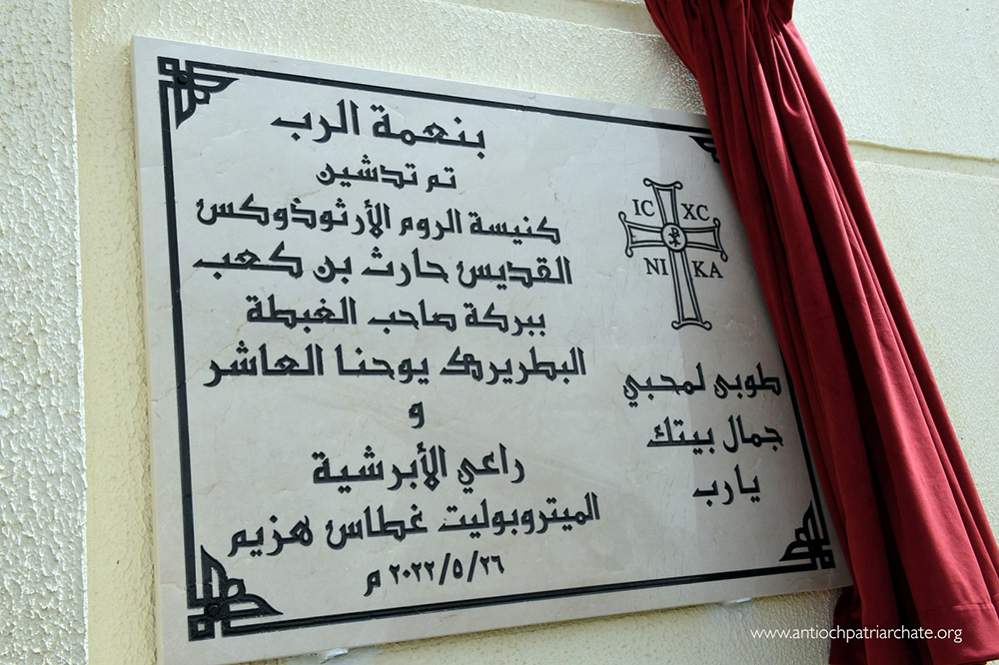 بنعمة الرب
تم تدشين
كنيسة الروم الأرثوذوكس
القديس حارث بن كعب
ببركة صاحب الغبطة
البطريرك يوحنا العاشر
و
راعي الأبرشية
الميتروبوليت غطاس هزيم
٢٠٢٢/٥/٢٦ م
IC XC
NI KA
طوبى لمحبي
جمال بيتك
يارب
www.antiochpatriarchate.org